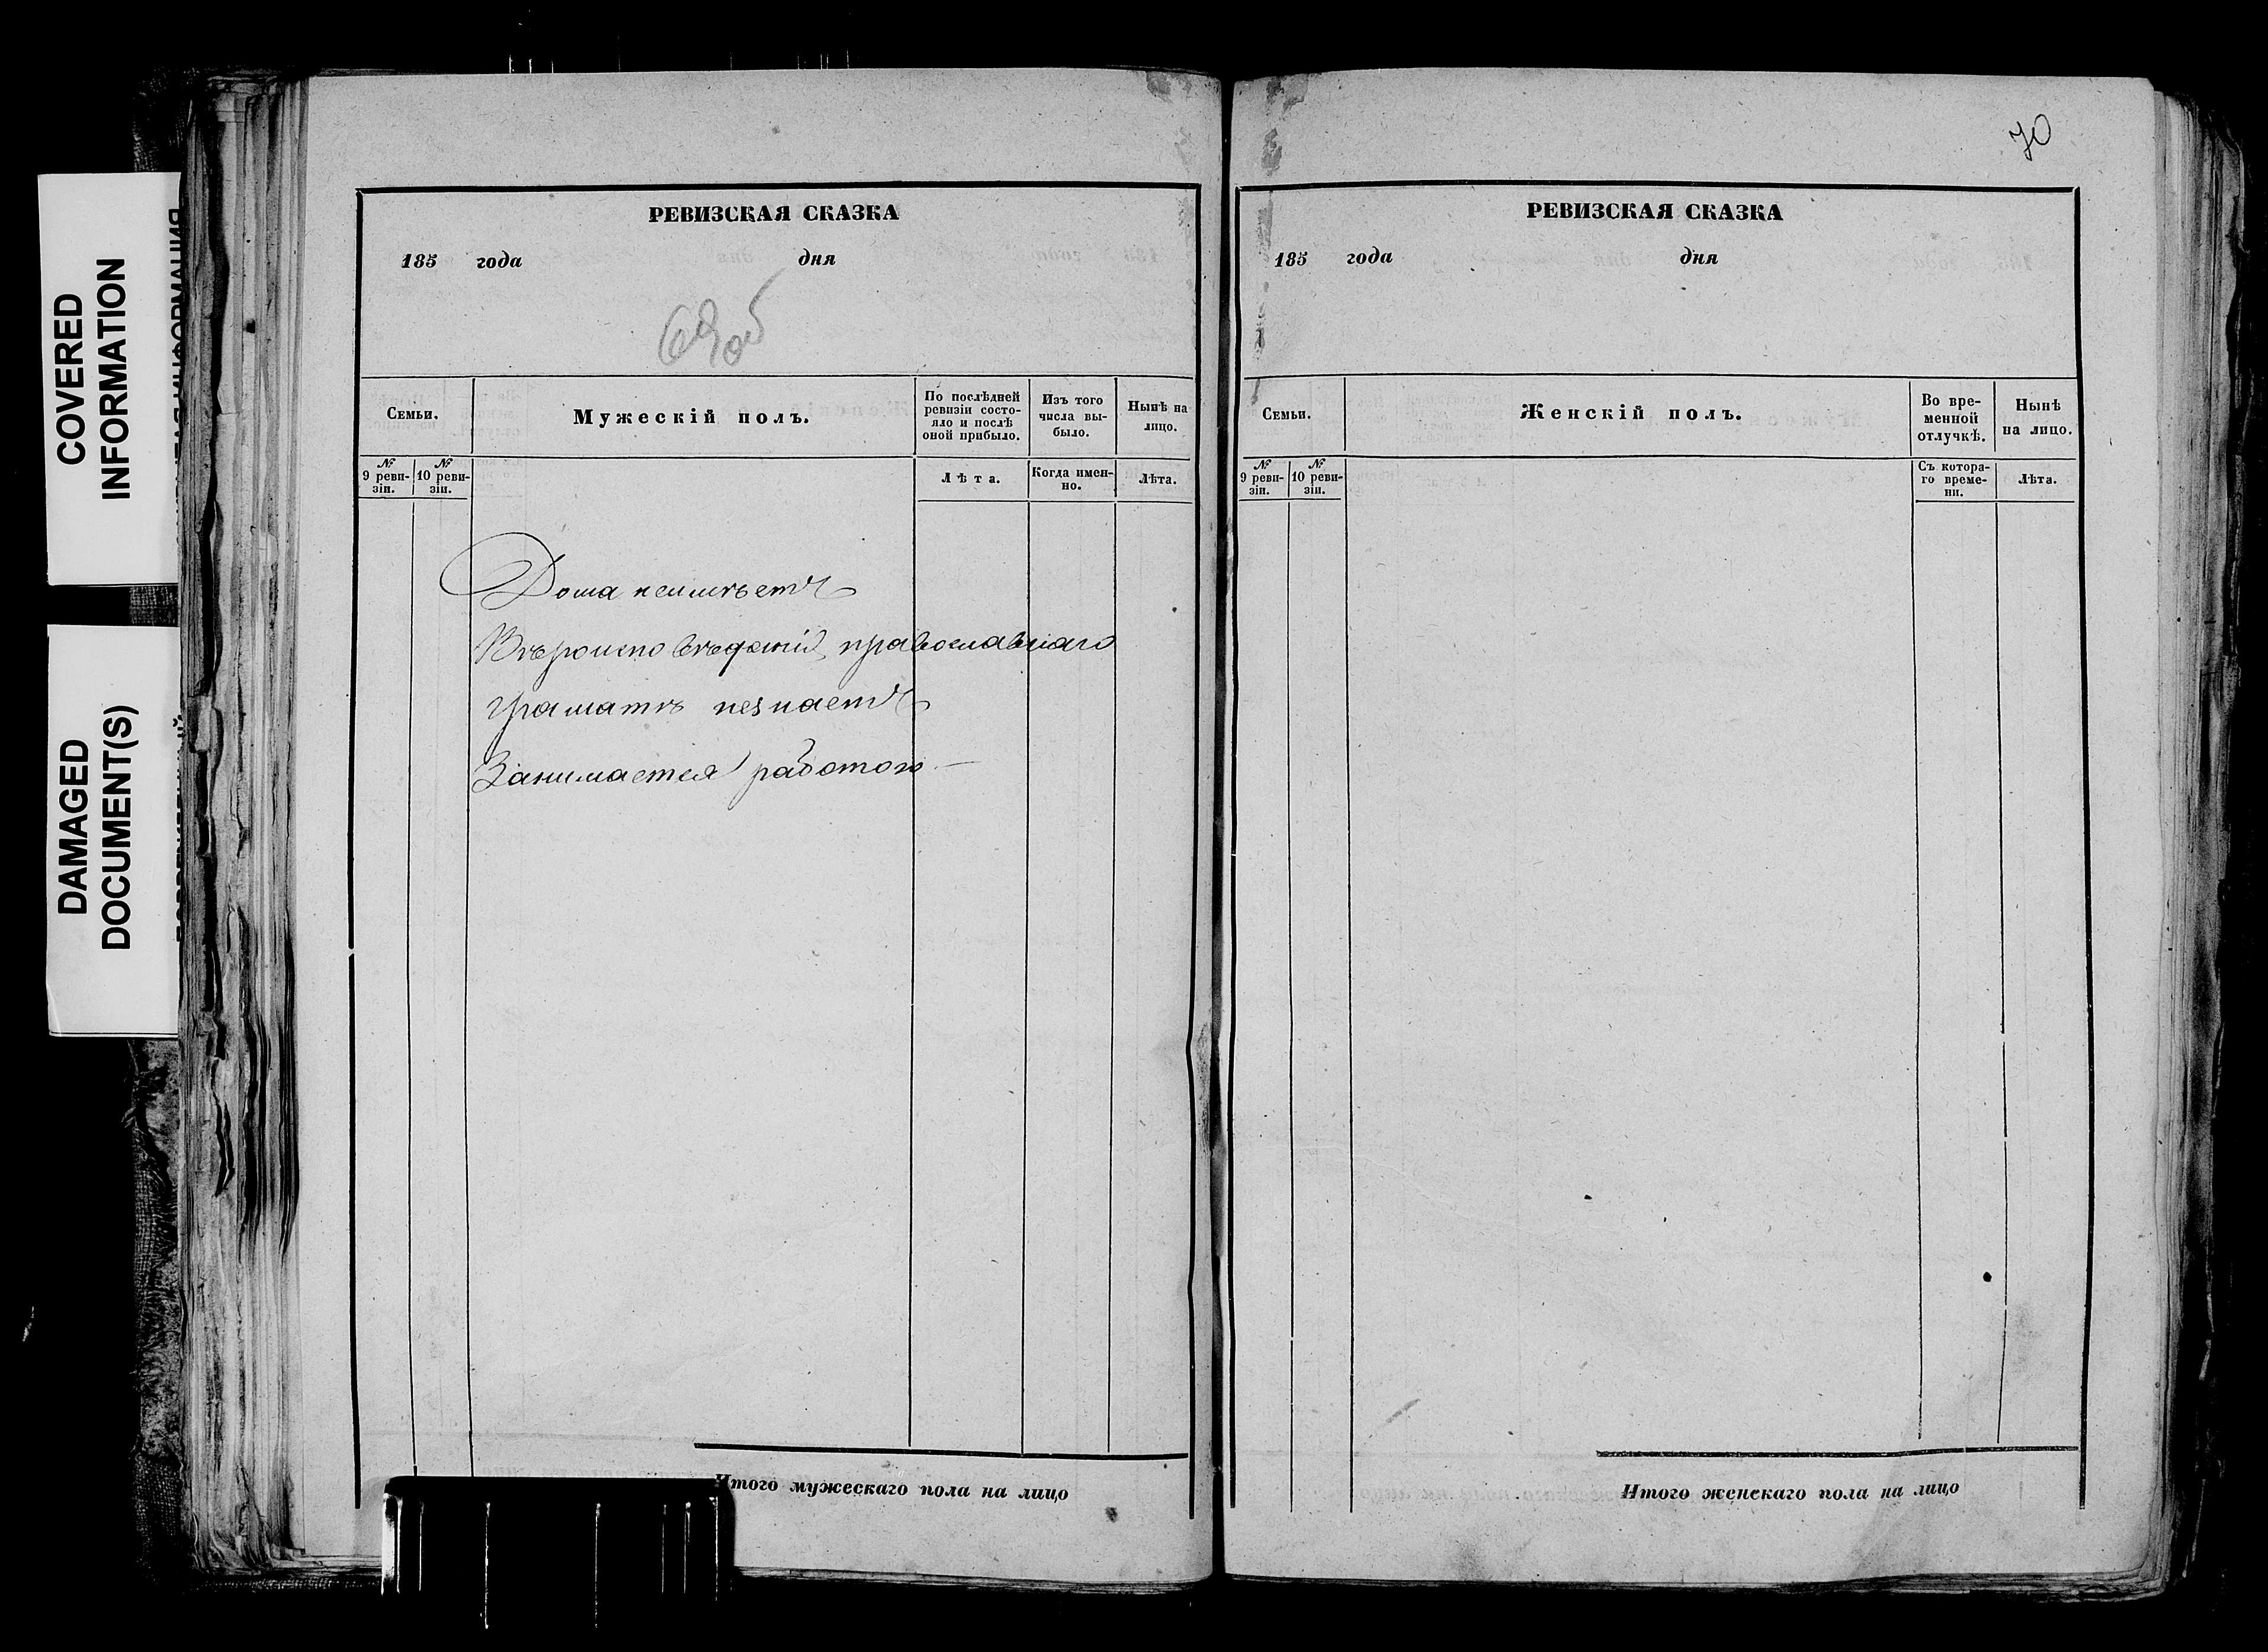 COVERED
INFORMATION
DAMAGED
DOCUMENT(S)
РЕВИЗСКАЯ СКАЗКА
185 года дня
69об
Семьи.
Мужескій полъ.
По послѣдней
ревизіи состо-
яло и послѣ
оной прибыло.
Изъ того
числа вы-
было.
Нынѣ на
лицо.
№
9 реви-
зіи.
№
10 реви-
зіи.
Лѣта.
Когда имен-
но.
Лѣта.
Дома неимѣетъ
Вѣроисповѣданія православнаго
Граматѣ незнаетъ
Занимается работою —
Итого мужескаго пола на лицо
70
РЕВИЗСКАЯ СКАЗКА
185 года дня
Семьи.
Женскій полъ.
Во вре-
менной
отлучкѣ.
Нынѣ
на лицо.
№
9 реви-
зіи.
№
10 реви-
зіи.
Съ котора-
го време-
ни.
Лѣта.
Итого женскаго пола на лицо